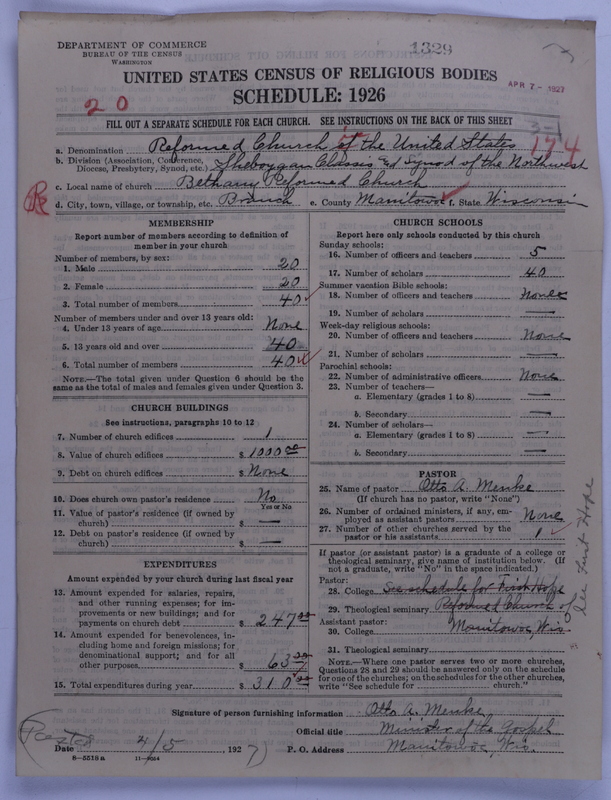 DEPARTMENT OF COMMERCE
BUREAU OF THE CENSUS
WASHINGTON
1329
UNITED STATES CENSUS OF RELIGIOUS BODIES
SCHEDULE: 1926
APR 7 - 1927
20
FILL OUT A SEPARATE SCHEDULE FOR EACH CHURCH. SEE INSTRUCTIONS ON THE BACK OF THIS SHEET
174
a. Denomination Reformed Church of the United States
b. Division (Association, Conference, Diocese, Presbytery, Synod, etc.) Sheboygan Classis and Synod of the Northwest
c. Local name of church Bethany Reformed Church
d. City, town, village, or township, etc. Branch e. County Manitowoc f. State Wisconsin
MEMBERSHIP
Report number of members according to definition of member in your church
Number of members, by sex:
1. Male 20
2. Female 20
3. Total number of members 40
Number of members under and over 13 years old:
4. Under 13 years of age None
5. 13 years old and over 40
6. Total number of members 40
NOTE.—The total given under Question 6 should be the same as the total of males and females given under Question 3.
CHURCH BUILDINGS
See instructions, paragraphs 10 to 12
7. Number of church edifices 1
8. Value of church edifices $ 1000 00
9. Debt on church edifices $ None
10. Does church own pastor's residence No
Yes or No
11. Value of pastor's residence (if owned by church) $ —
12. Debt on pastor's residence (if owned by church) $ —
EXPENDITURES
Amount expended by your church during last fiscal year
13. Amount expended for salaries, repairs, and other running expenses; for improvements or new buildings; and for payments on church debt $ 247 00
14. Amount expended for benevolences, including home and foreign missions; for denominational support; and for all other purposes $ 63 00
15. Total expenditures during year $ 310 00
CHURCH SCHOOLS
Report here only schools conducted by this church
Sunday schools:
16. Number of officers and teachers 5
17. Number of scholars 40
Summer vacation Bible schools:
18. Number of officers and teachers None
19. Number of scholars —
Week-day religious schools:
20. Number of officers and teachers None
21. Number of scholars —
Parochial schools:
22. Number of administrative officers None
23. Number of teachers—
a. Elementary (grades 1 to 8) —
b. Secondary —
24. Number of scholars—
a. Elementary (grades 1 to 8) —
b. Secondary —
PASTOR
25. Name of pastor Otto A. Menke
(If church has no pastor, write "None")
26. Number of ordained ministers, if any, employed as assistant pastors None
27. Number of other churches served by the pastor or his assistants 1
If pastor (or assistant pastor) is a graduate of a college or theological seminary, give name of institution below. (If not a graduate, write "No" in the space indicated.)
Pastor:
28. College See schedule for First Hope
29. Theological seminary Reformed Church of
Assistant pastor:
30. College Manitowoc, Wis.
31. Theological seminary
NOTE.—Where one pastor serves two or more churches, Questions 28 and 29 should be answered only on the schedule for one of the churches; on the schedules for the other churches, write "See schedule for church."
See First Hope
Signature of person furnishing information Otto A. Menke
Official title Minister of the Gospel
Date 4/5 1927 P. O. Address Manitowoc, Wis.
8—5518 a